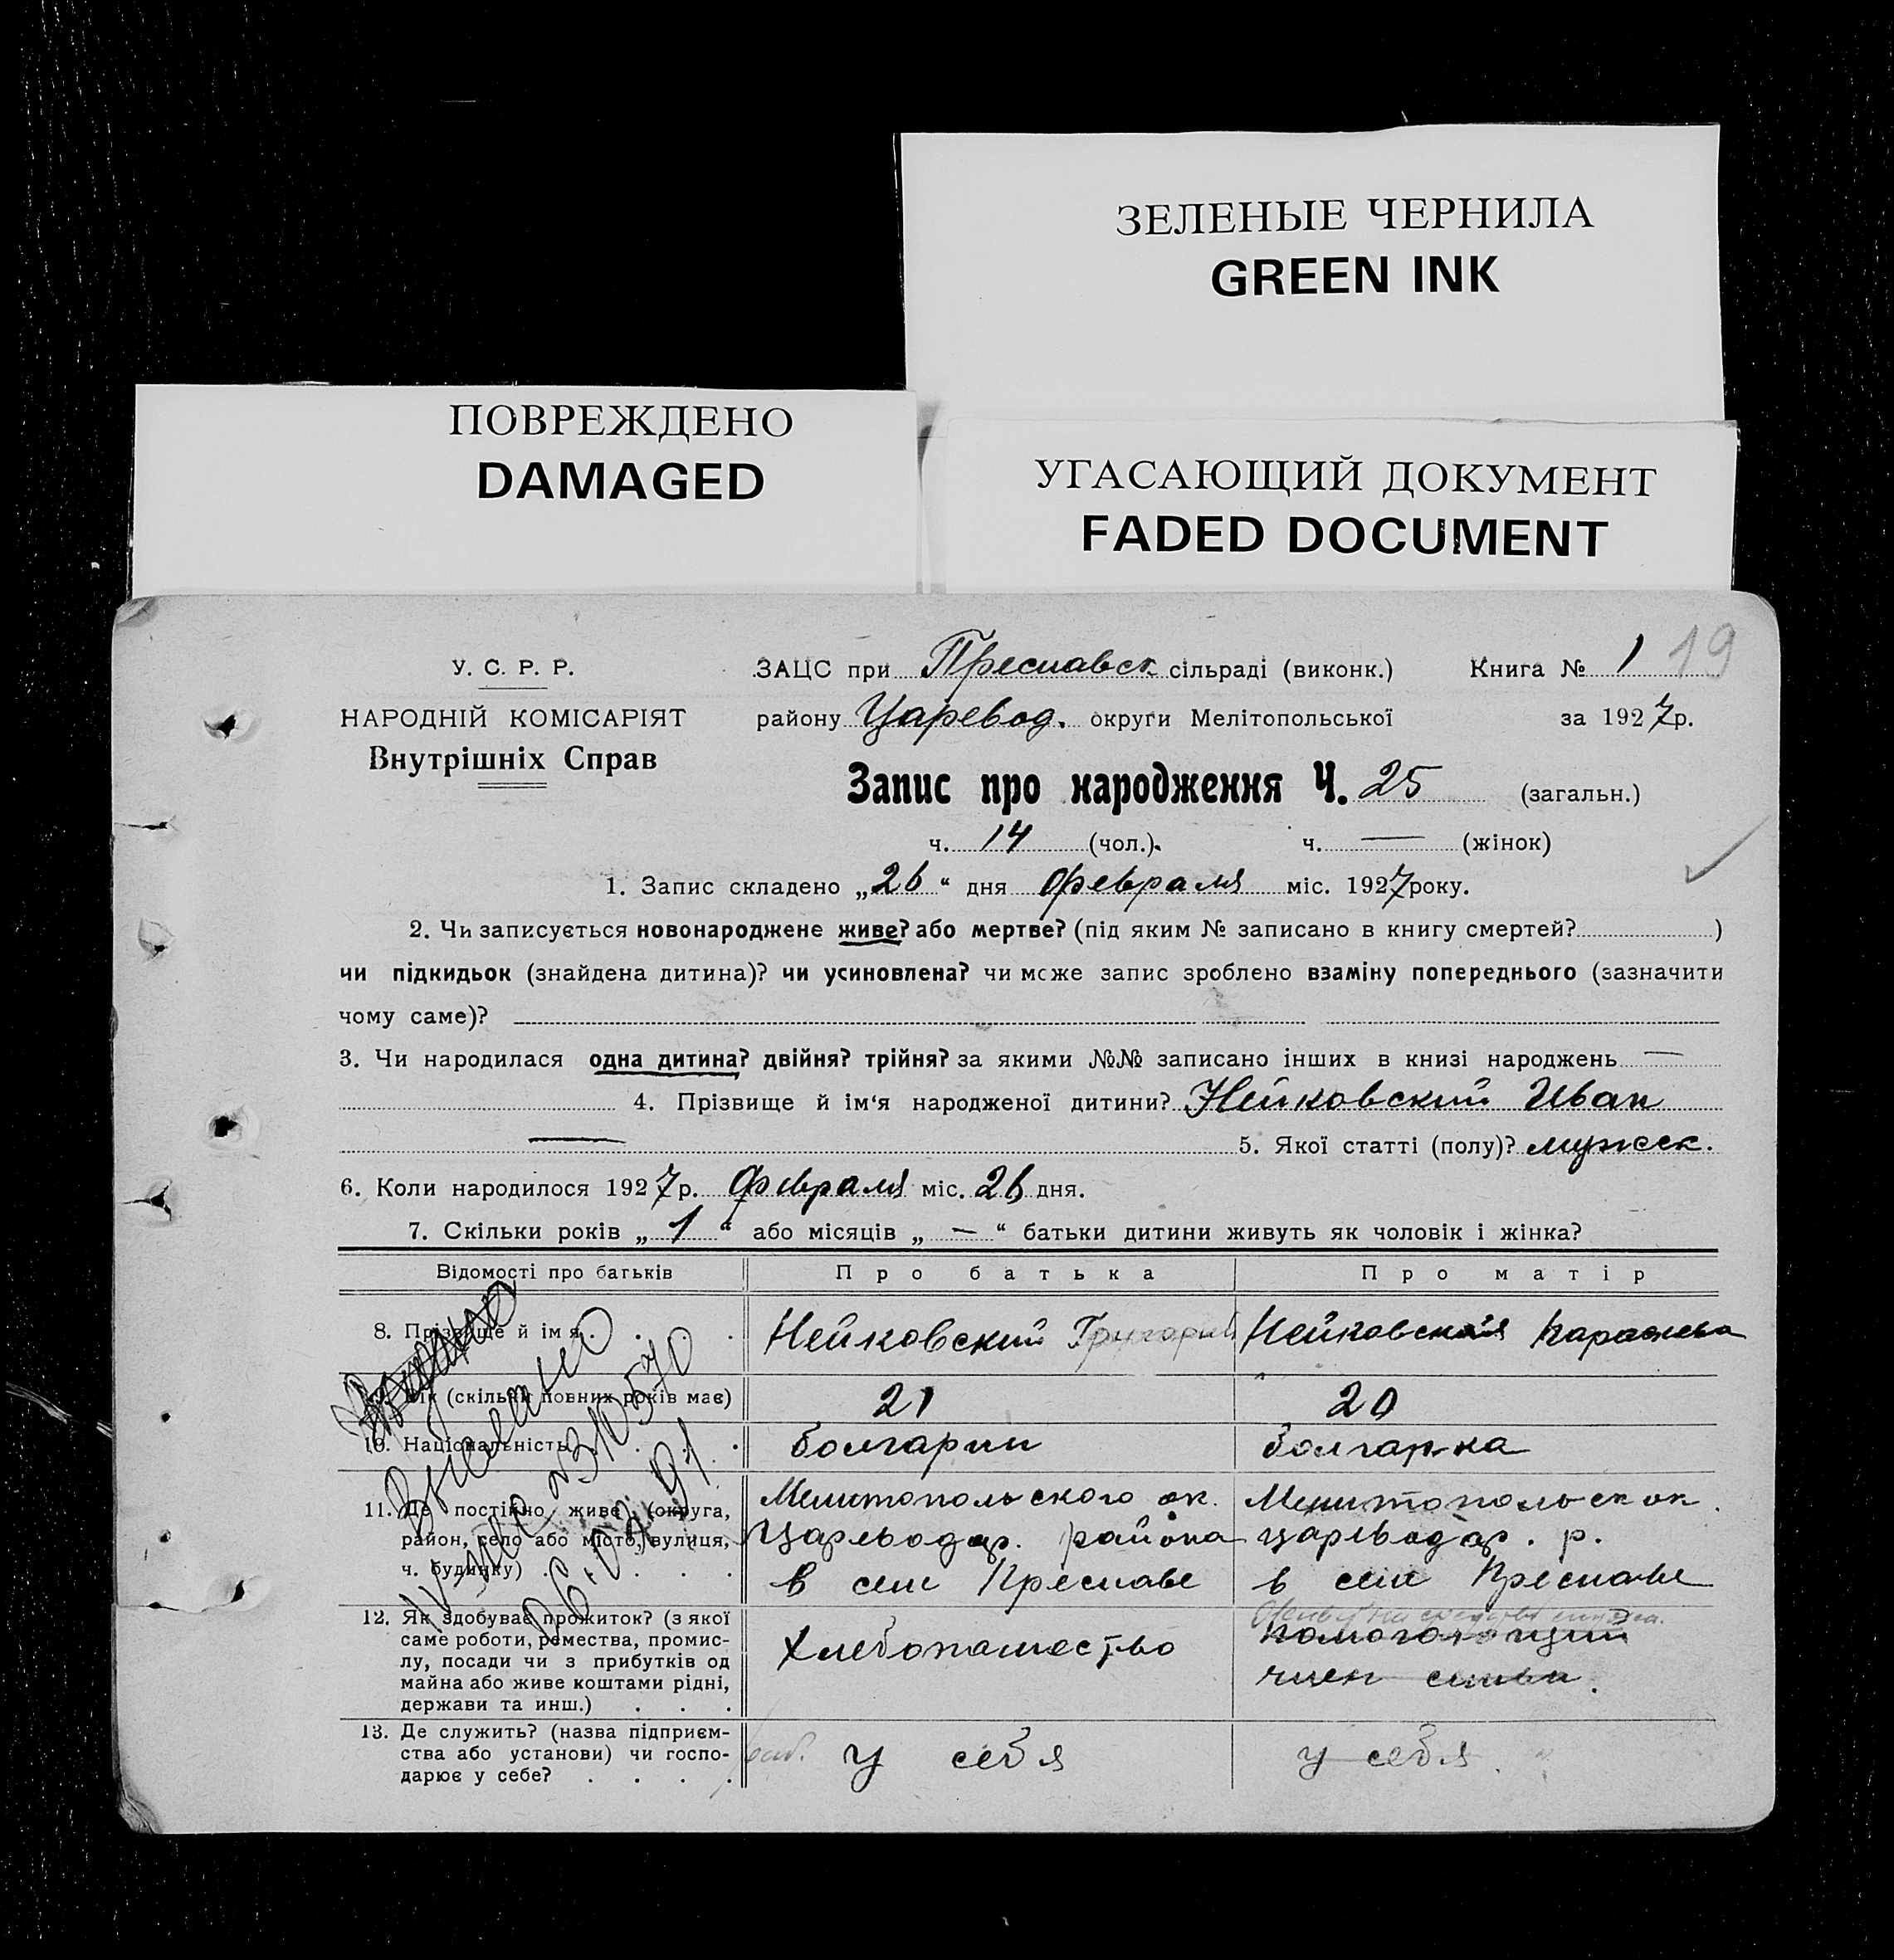 ЗЕЛЕНЫЕ ЧЕРНИЛА
GREEN INK
ПОВРЕЖДЕНО
DAMAGED
УГАСАЮЩИЙ ДОКУМЕНТ
FADED DOCUMENT
19
У. С. Р. Р.
НАРОДНІЙ КОМІСАРІЯТ
Внутрішніх Справ
ЗАЦС при Преславск. сільраді (виконк.) Книга № 1
району Царевод. округи Мелітопольської за 1927 р.
Запис про народження Ч. 25 (загальн.)
ч. 14 (чол.). ч. — (жінок)
1. Запис складено „26“ дня февраля міс. 1927 року.
2. Чи записується новонароджене живе? або мертве? (під яким № записано в книгу смертей? )
чи підкидьок (знайдена дитина)? чи усиновлена? чи може запис зроблено взаміну попереднього (зазначити
чому саме)?
3. Чи народилася одна дитина? двійня? трійня? за якими №№ записано інших в книзі народжень —
4. Прізвище й ім‘я народженої дитини? Нейковский Иван
— 5. Якої статті (полу)? мужск.
6. Коли народилося 1927 р. февраля міс. 26 дня.
7. Скільки років „1“ або місяців „—“ батьки дитини живуть як чоловік і жінка?
Відомості про батьків Про батька Про матір
8. Прізвище й ім‘я . . . . Нейковский Григорий Нейковская
9. Вік (скільки повних років має) 21 20
10. Національність . . . . болгарин болгарка
11. Де постійно живе (округа,
район, село або місто, вулиця,
ч. будинку) . . . . .
Мелитопольского ок.
Царьводар. района
в селе Преславе
Мелитопольск ок.
царьводар. р.
в селе Преславе
12. Як здобуває прожиток? (з якої
саме роботи, ремества, промис-
лу, посади чи з прибутків од
майна або живе коштами рідні,
держави та инш.) . . .
Хлебопашество
помогающий
член семьи.
13. Де служить? (назва підприєм-
ства або установи) чи госпо-
дарює у себе? . . . .
у себя
у себя.
Выдано